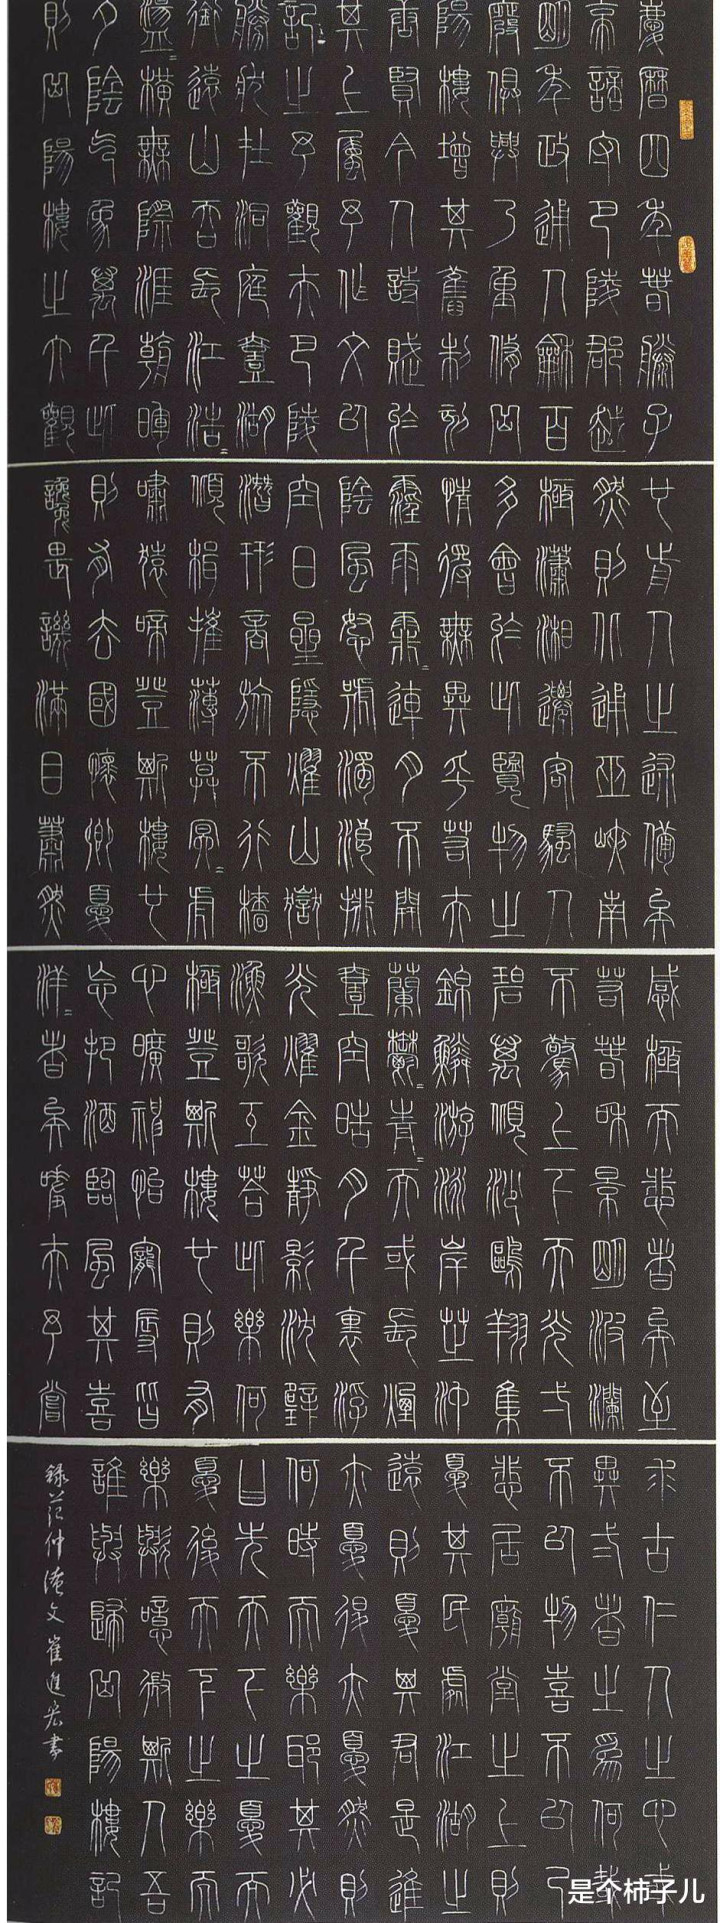 慶曆四年春滕子
京謫守巴陵郡越
明年政通人龢百
廢俱興乃重修岳
陽樓增其舊制刻
唐賢今人詩賦於
其上屬予作文以
記之予觀夫巴陵
勝狀在洞庭壹湖
銜遠山吞長江浩=
湯=橫無際涯朝暉
夕陰氣象萬千此
則岳陽樓之大觀
也前人之述備矣
然則北通巫峽南
極瀟湘遷客騷人
多會於此覽物之
情得無異乎若夫
霪雨霏=連月不開
陰風怒號濁浪排
空日星隱燿山嶽
潛形商旅不行檣
傾楫摧薄莫冥=虎
嘯猿啼登斯樓也
則有去國懷鄉憂
讒畏譏滿目蕭然
感極而悲者矣至
若春和景明波瀾
不驚上下天光弌
碧萬頃沙鷗翔集
錦鱗游泳岸芷汀
蘭鬱=青=而或長煙
壹空皓月千里浮
光燿金靜影沈璧
漁歌互答此樂何
極登斯樓也則有
心曠神怡寵辱皆
忘把酒臨風其喜
洋=者矣嗟夫予嘗
求古仁人之心或
異弍者之為何哉
不以物喜不以己
悲居廟堂之上則
憂其民處江湖之
遠則憂其君是進
亦憂退亦憂然則
何時而樂耶其必
曰先天下之憂而
憂後天下之樂而
樂歟噫微斯人吾
誰與歸岳陽樓記
錄范仲淹文崔進宏書
是个柿子儿